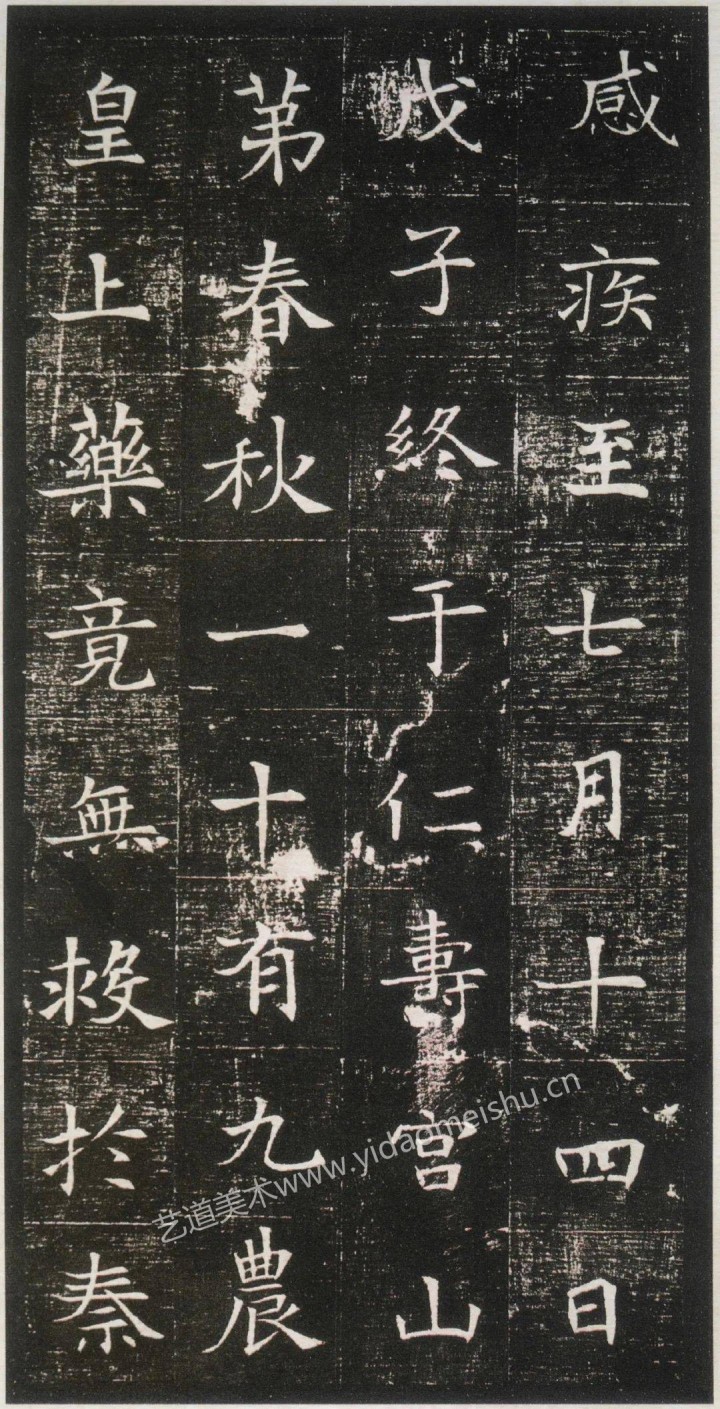 感疾至七月十四日
戊子終于仁壽宮山
苐春秋一十有九農
皇上藥竟無救於秦
艺道美术www.yidaomeishu.cn